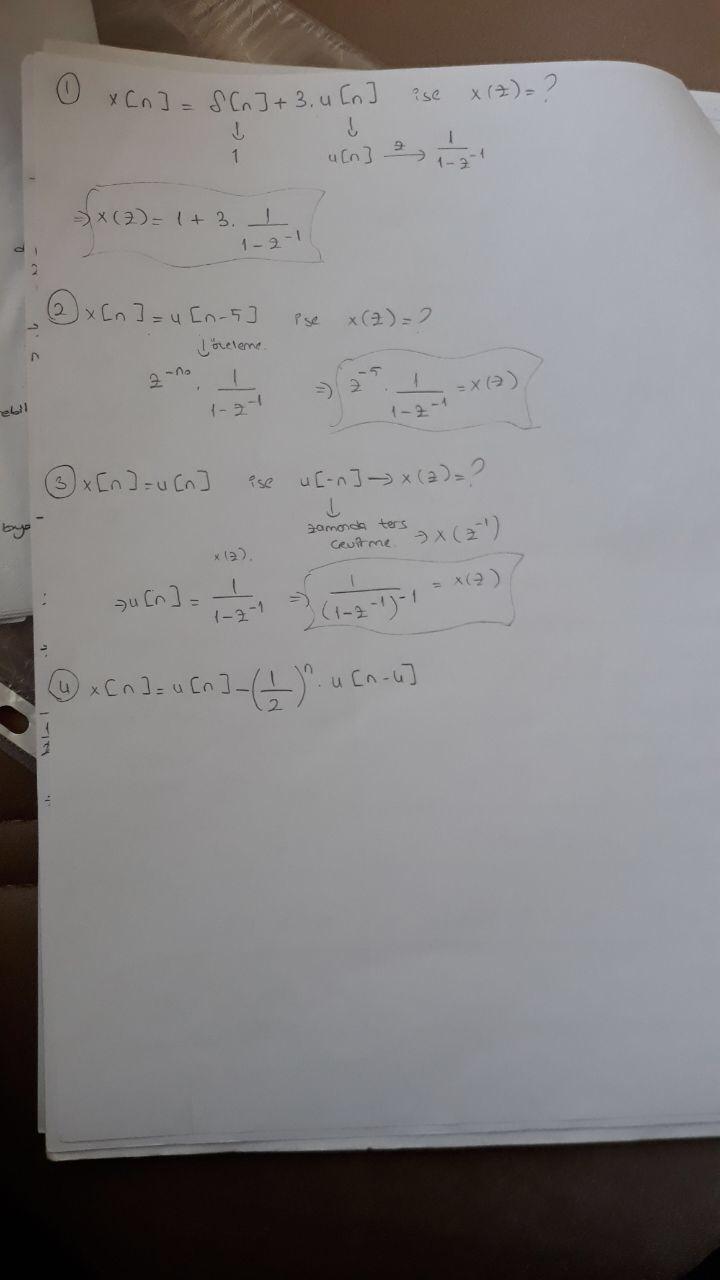 ① x[n] = δ[n] + 3. u[n] ise x(z) = ?
↓ ↓
1 u[n] z→ 1/(1-z^-1)
⇒ x(z) = 1 + 3. 1/(1-z^-1)
② x[n] = u[n-5] ise x(z) = ?
↓ öteleme.
z^-n₀ . 1/(1-z^-1) ⇒ z^-5 . 1/(1-z^-1) = x(z)
③ x[n] = u[n] ise u[-n] → x(z) = ?
↓
zamanda ters
çevirme. → x(z^-1)
x(z).
⇒ u[n] = 1/(1-z^-1) ⇒ 1/(1-z^-1)^-1 = x(z)
④ x[n] = u[n] - (1/2)^n . u[n-4]